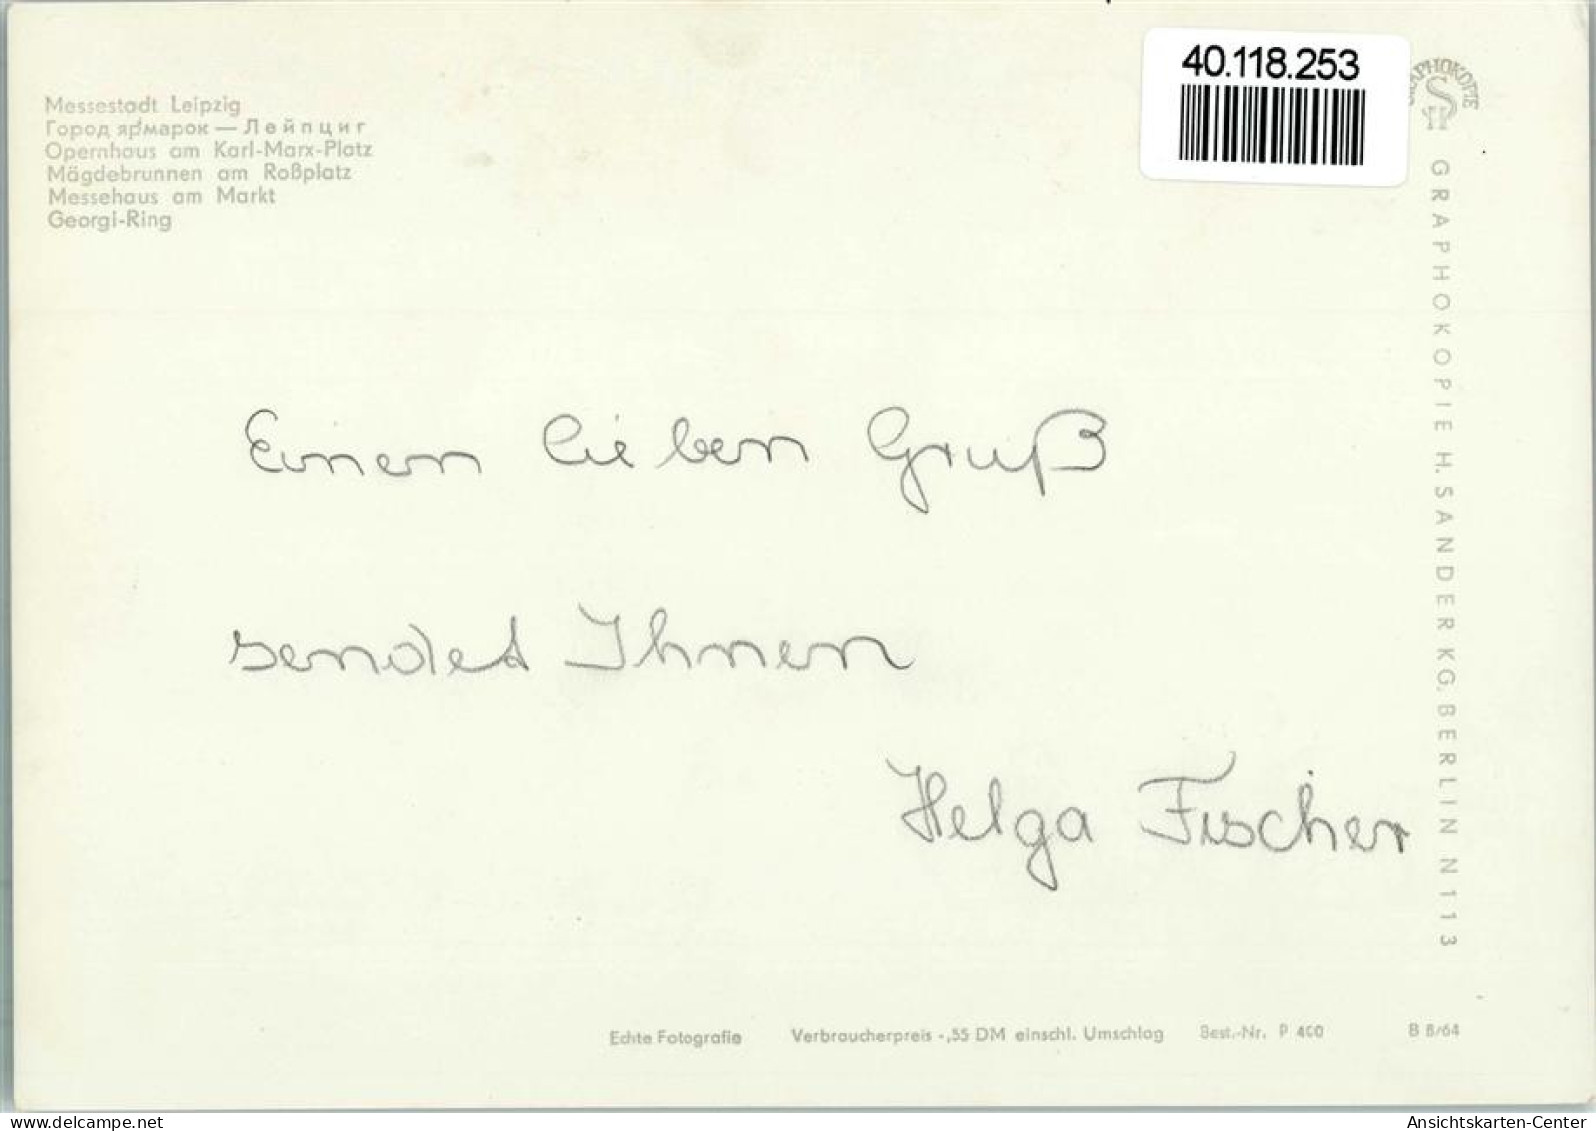 Messestadt Leipzig
Город ярмарок — Лейпциг
Opernhaus am Karl-Marx-Platz
Mägdebrunnen am Roßplatz
Messehaus am Markt
Georgi-Ring
40.118.253
GRAPHOKOPIE H. SANDER KG. BERLIN N 113
Einen lieben Gruß
sendet Ihnen
Helga Fischer
Echte Fotografie Verbraucherpreis -,55 DM einschl. Umschlag Best.-Nr. P 400 B 8/64
www.delcampe.net
Ansichtskarten-Center